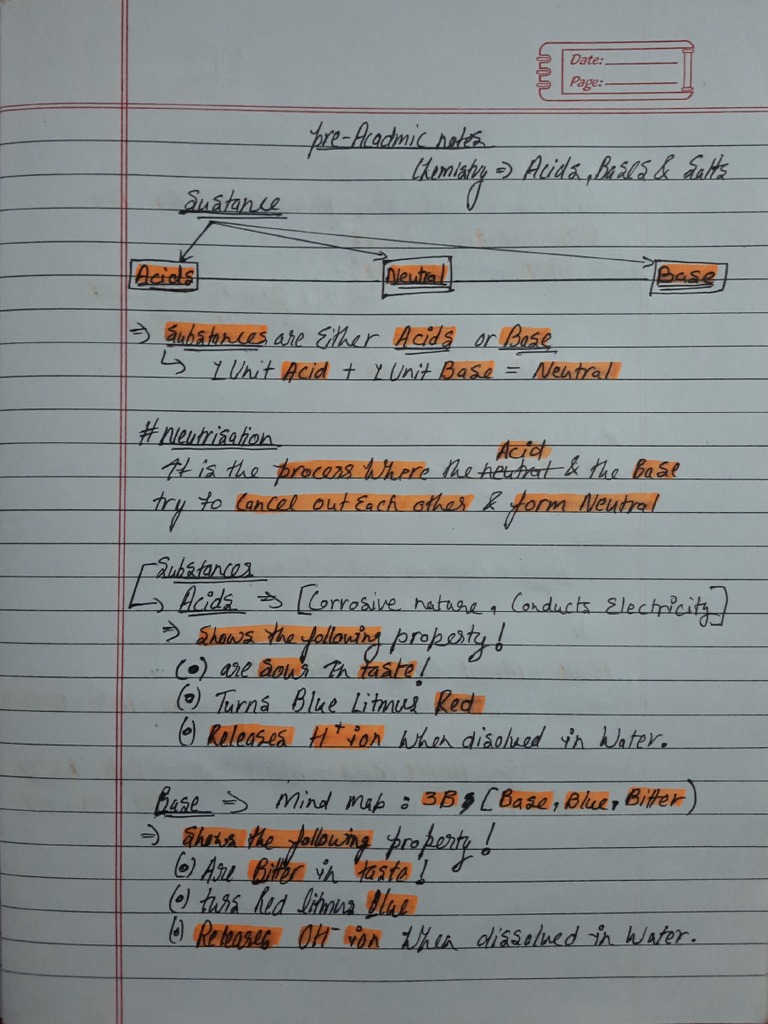 Date:
Page:
pre-Acadmic notes
Chemistry ⇒ Acids, Bases & Salts
Sustance
Acids Neutral Base
⇒ Substances are Either Acids or Base
↳ 1 Unit Acid + 1 Unit Base = Neutral
# Neutrisation
Acid
It is the process Where the neutral & the Base
try to Cancel out Each other & form Neutral
Substances
→ Acids ⇒ [Corrosive nature, Conducts Electricity]
⇒ Shows the following property!
(•) are Sour In taste!
(•) Turns Blue Litmus Red
(•) Releases H⁺ ion When disolued in Water.
Base ⇒ Mind map : 3B, [Base, Blue, Bitter)
⇒ Shows the following property!
(•) Are Bitter in taste!
(•) turs Red litmus Blue
(•) Releases OH⁻ ion When dissolued in Water.